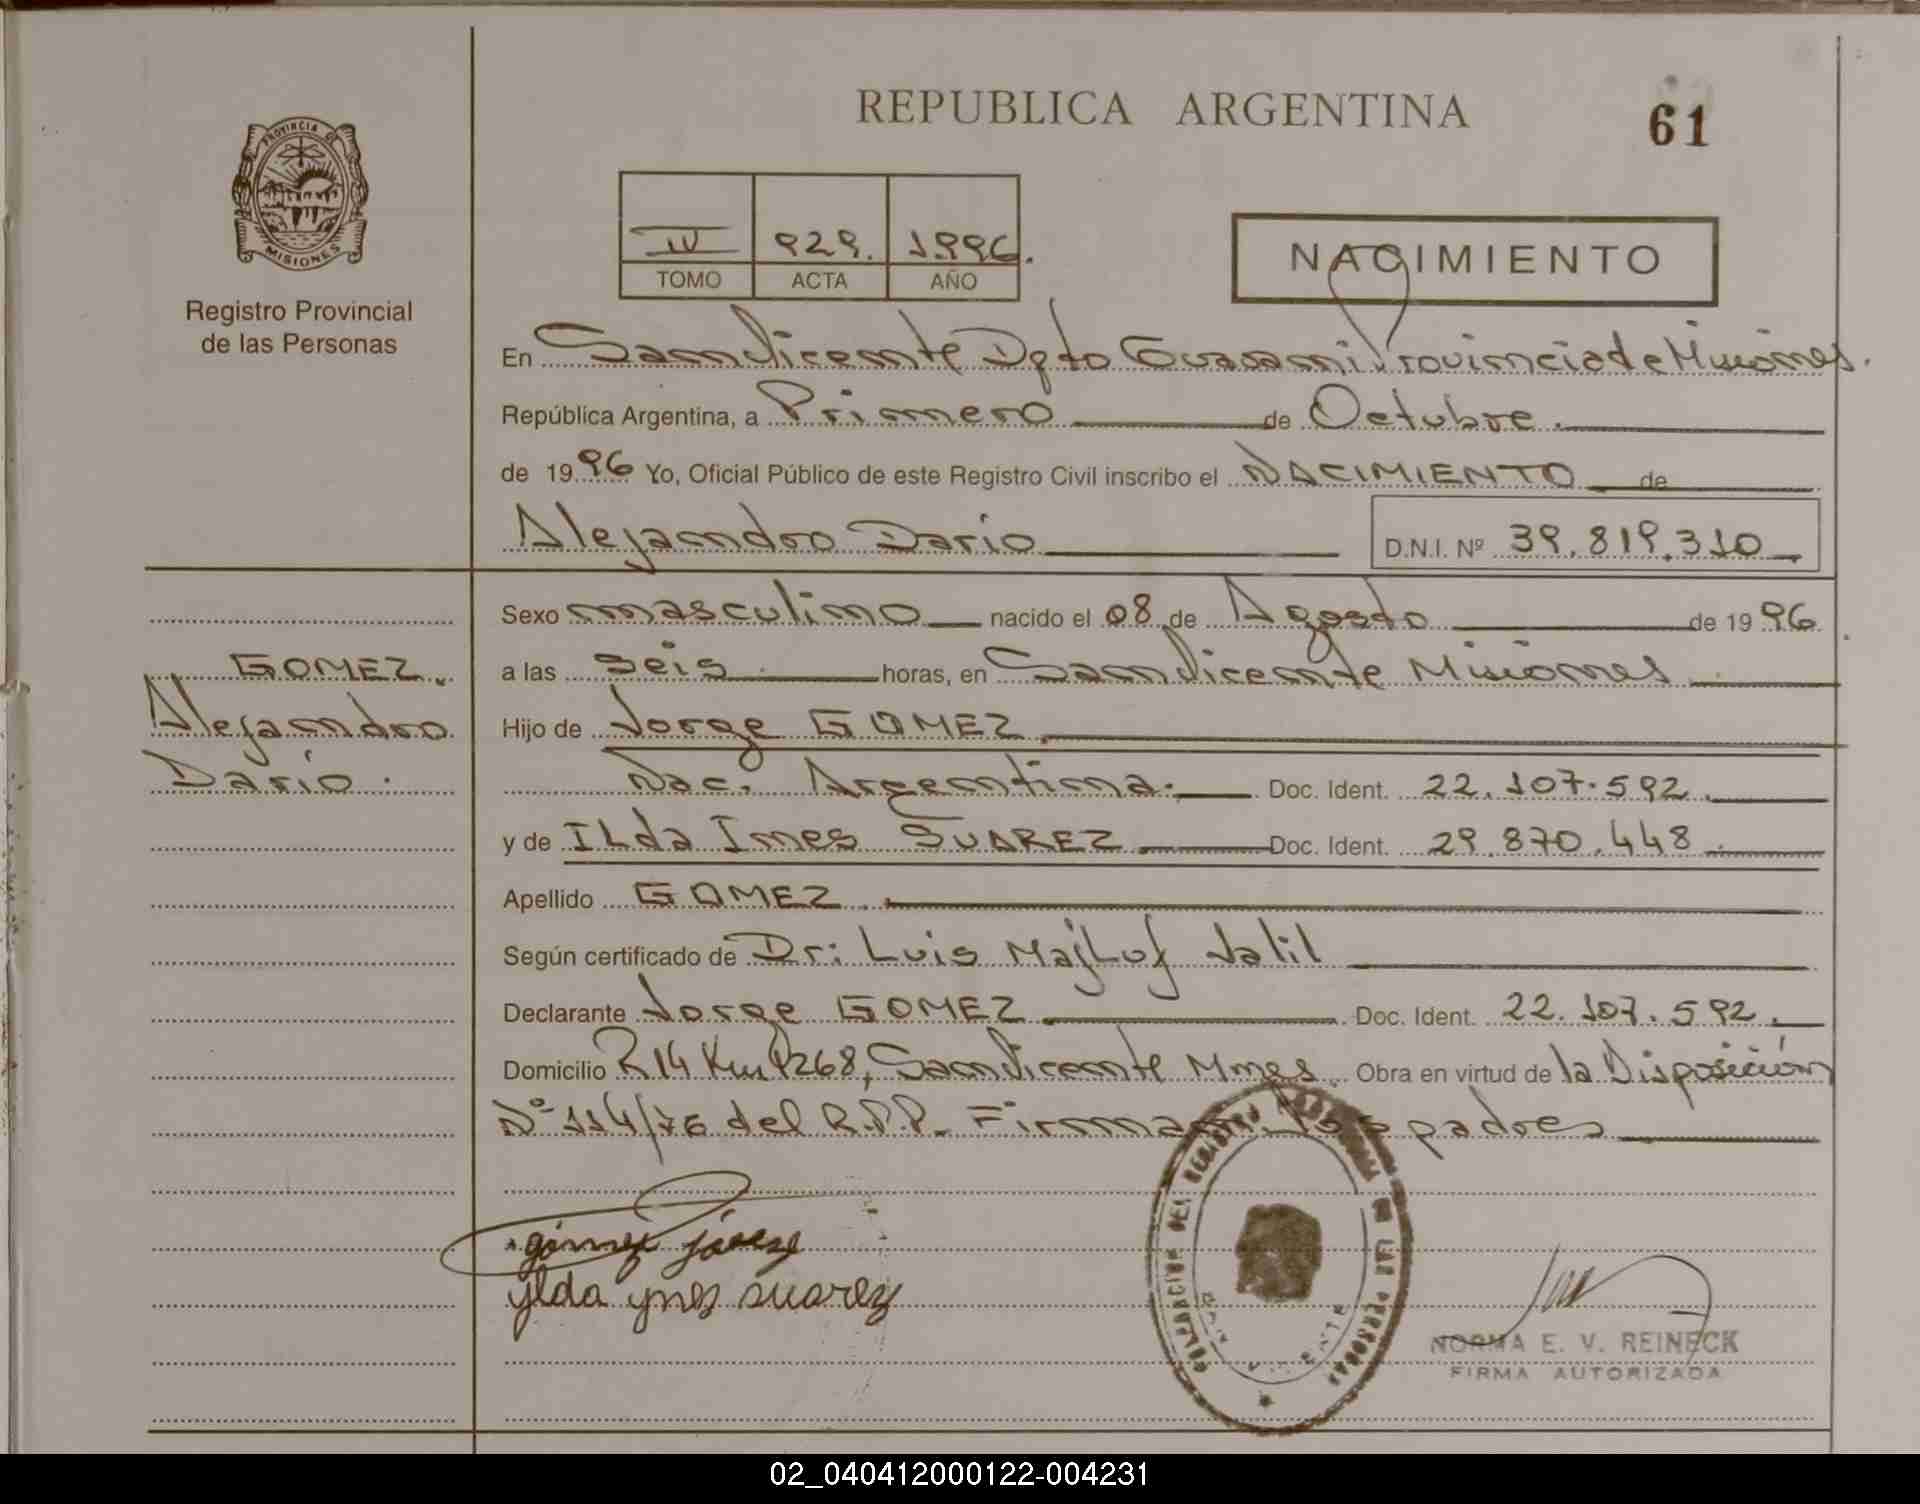 REPUBLICA ARGENTINA
61
PROVINCIA DE
MISIONES
Registro Provincial
de las Personas
IV 929. 1996.
TOMO ACTA AÑO
NACIMIENTO
En San Vicente Dpto Guarani Provincia de Misiones.
República Argentina, a Primero de Octubre.
de 1996 Yo, Oficial Público de este Registro Civil inscribo el NACIMIENTO de
Alejandro Dario D.N.I. Nº 39.819.310
Sexo masculino nacido el 08 de Agosto de 1996
GOMEZ.
Alejandro
Dario.
a las seis horas, en San Vicente Misiones
Hijo de Jorge GOMEZ
Nac. Argentina. Doc. Ident. 22.107.592.
y de ILda Ines SUAREZ Doc. Ident. 29.870.448.
Apellido GOMEZ.
Según certificado de Dr: Luis MajLuf Jalil
Declarante Jorge GOMEZ Doc. Ident. 22.107.592.
Domicilio R14 Km 1268, San Vicente Mnes. Obra en virtud de la Disposición
Nº 114/76 del R.P.P. Firman los padres
gómez jorge
ylda ynes suarez
NORMA E. V. REINECK
FIRMA AUTORIZADA
02_040412000122-004231